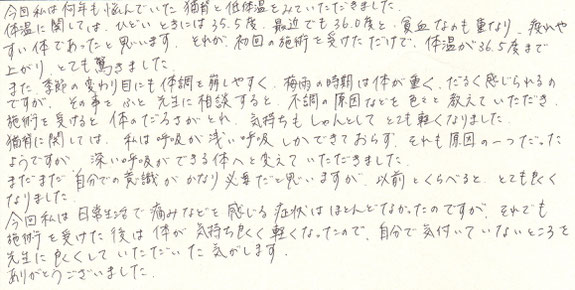 今回私は何年も悩んでいた猫背と低体温をみていただきました.
体温に関しては、ひどいときには35.5度、最近でも36.0度と、貧血なども重なり、疲れや
すい体であったと思います それが初回の施術を受けただけで、体温が36.5度まで
上がり とても驚きました
また季節の変わり目にも体調を崩しやすく、梅雨の時期は体が重く、だるく感じられるの
ですが、その事をふと先生に相談すると、不調の原因などを色々と教えていただき、
施術を受けると体のだるさがとれ、気持ちもしゃんとしてとても軽くなりました.
猫背に関しては、私は呼吸が浅い呼吸しかできておらず、それも原因の一つだった
ようですが 深い呼吸ができる体へと変えていただきました.
まだまだ自分での意識がかなり必要だと思いますが、以前とくらべると、とても良く
なりました
今回私は日常生活で痛みなどを感じる症状はほとんどなかったのですが、それでも
施術を受けた後は体が気持ち良く軽くなったので、自分で気付いていないところを
先生に良くしていただいた気がします.
ありがとうございました.